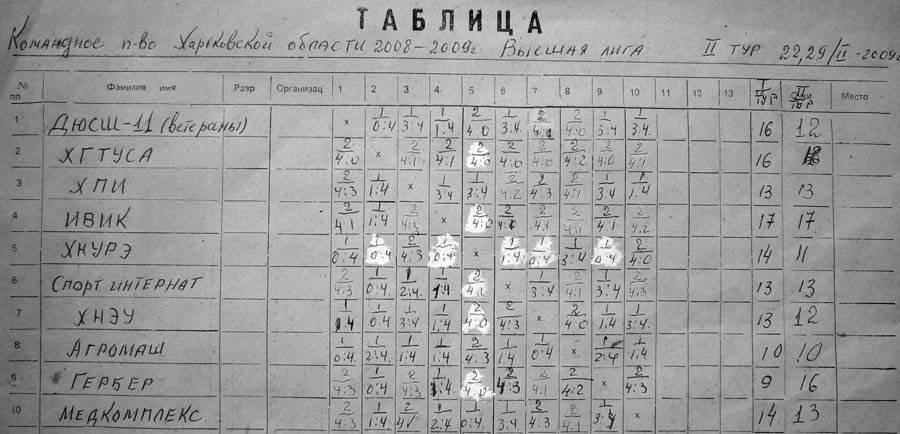 ТАБЛИЦА
Командное п-во Харьковской области 2008-2009г. Высшая лига II тур 22,29/II-2009г
№ пп Фамилия имя Разр Организац 1 2 3 4 5 6 7 8 9 10 11 12 13 I тур Очки II тур Место
1 ДЮСШ-11 (ветераны) × 1/0:4 1/3:4 1/1:4 2/4:0 1/3:4 2/4:1 2/4:0 1/3:4 1/3:4 16 12
2 ХГТУСА 2/4:0 × 2/4:1 2/4:1 2/4:0 2/4:0 2/4:0 2/4:2 2/4:0 2/4:1 16 18
3 ХПИ 2/4:3 1/1:4 × 1/3:4 1/3:4 2/4:2 2/4:3 2/4:1 1/3:4 1/1:4 13 13
4 ИВИК 2/4:1 1/1:4 2/4:3 × 2/4:0 2/4:1 2/4:1 2/4:1 2/4:1 2/4:2 17 17
5 ХНУРЭ 1/0:4 1/0:4 2/4:3 1/0:4 × 1/1:4 1/0:4 1/3:4 1/0:4 2/4:0 14 11
6 Спорт интернат 2/4:3 1/0:4 1/2:4 1/1:4 2/4:1 × 1/3:4 2/4:1 1/3:4 2/4:3 13 13
7 ХНЭУ 1/1:4 1/0:4 1/3:4 1/1:4 2/4:0 2/4:3 × 2/4:0 1/1:4 1/3:4 13 12
8 Агромаш 1/0:4 1/2:4 1/1:4 1/1:4 2/4:3 1/1:4 1/0:4 × 1/2:4 1/1:4 10 10
9 Гербер 2/4:3 1/0:4 2/4:3 1/1:4 2/4:0 2/4:3 2/4:1 2/4:2 × 2/4:3 9 16
10 Медкомплекс. 2/4:3 1/1:4 2/4:1 1/2:4 1/0:4 1/3:4 2/4:3 2/4:1 1/3:4 × 14 13